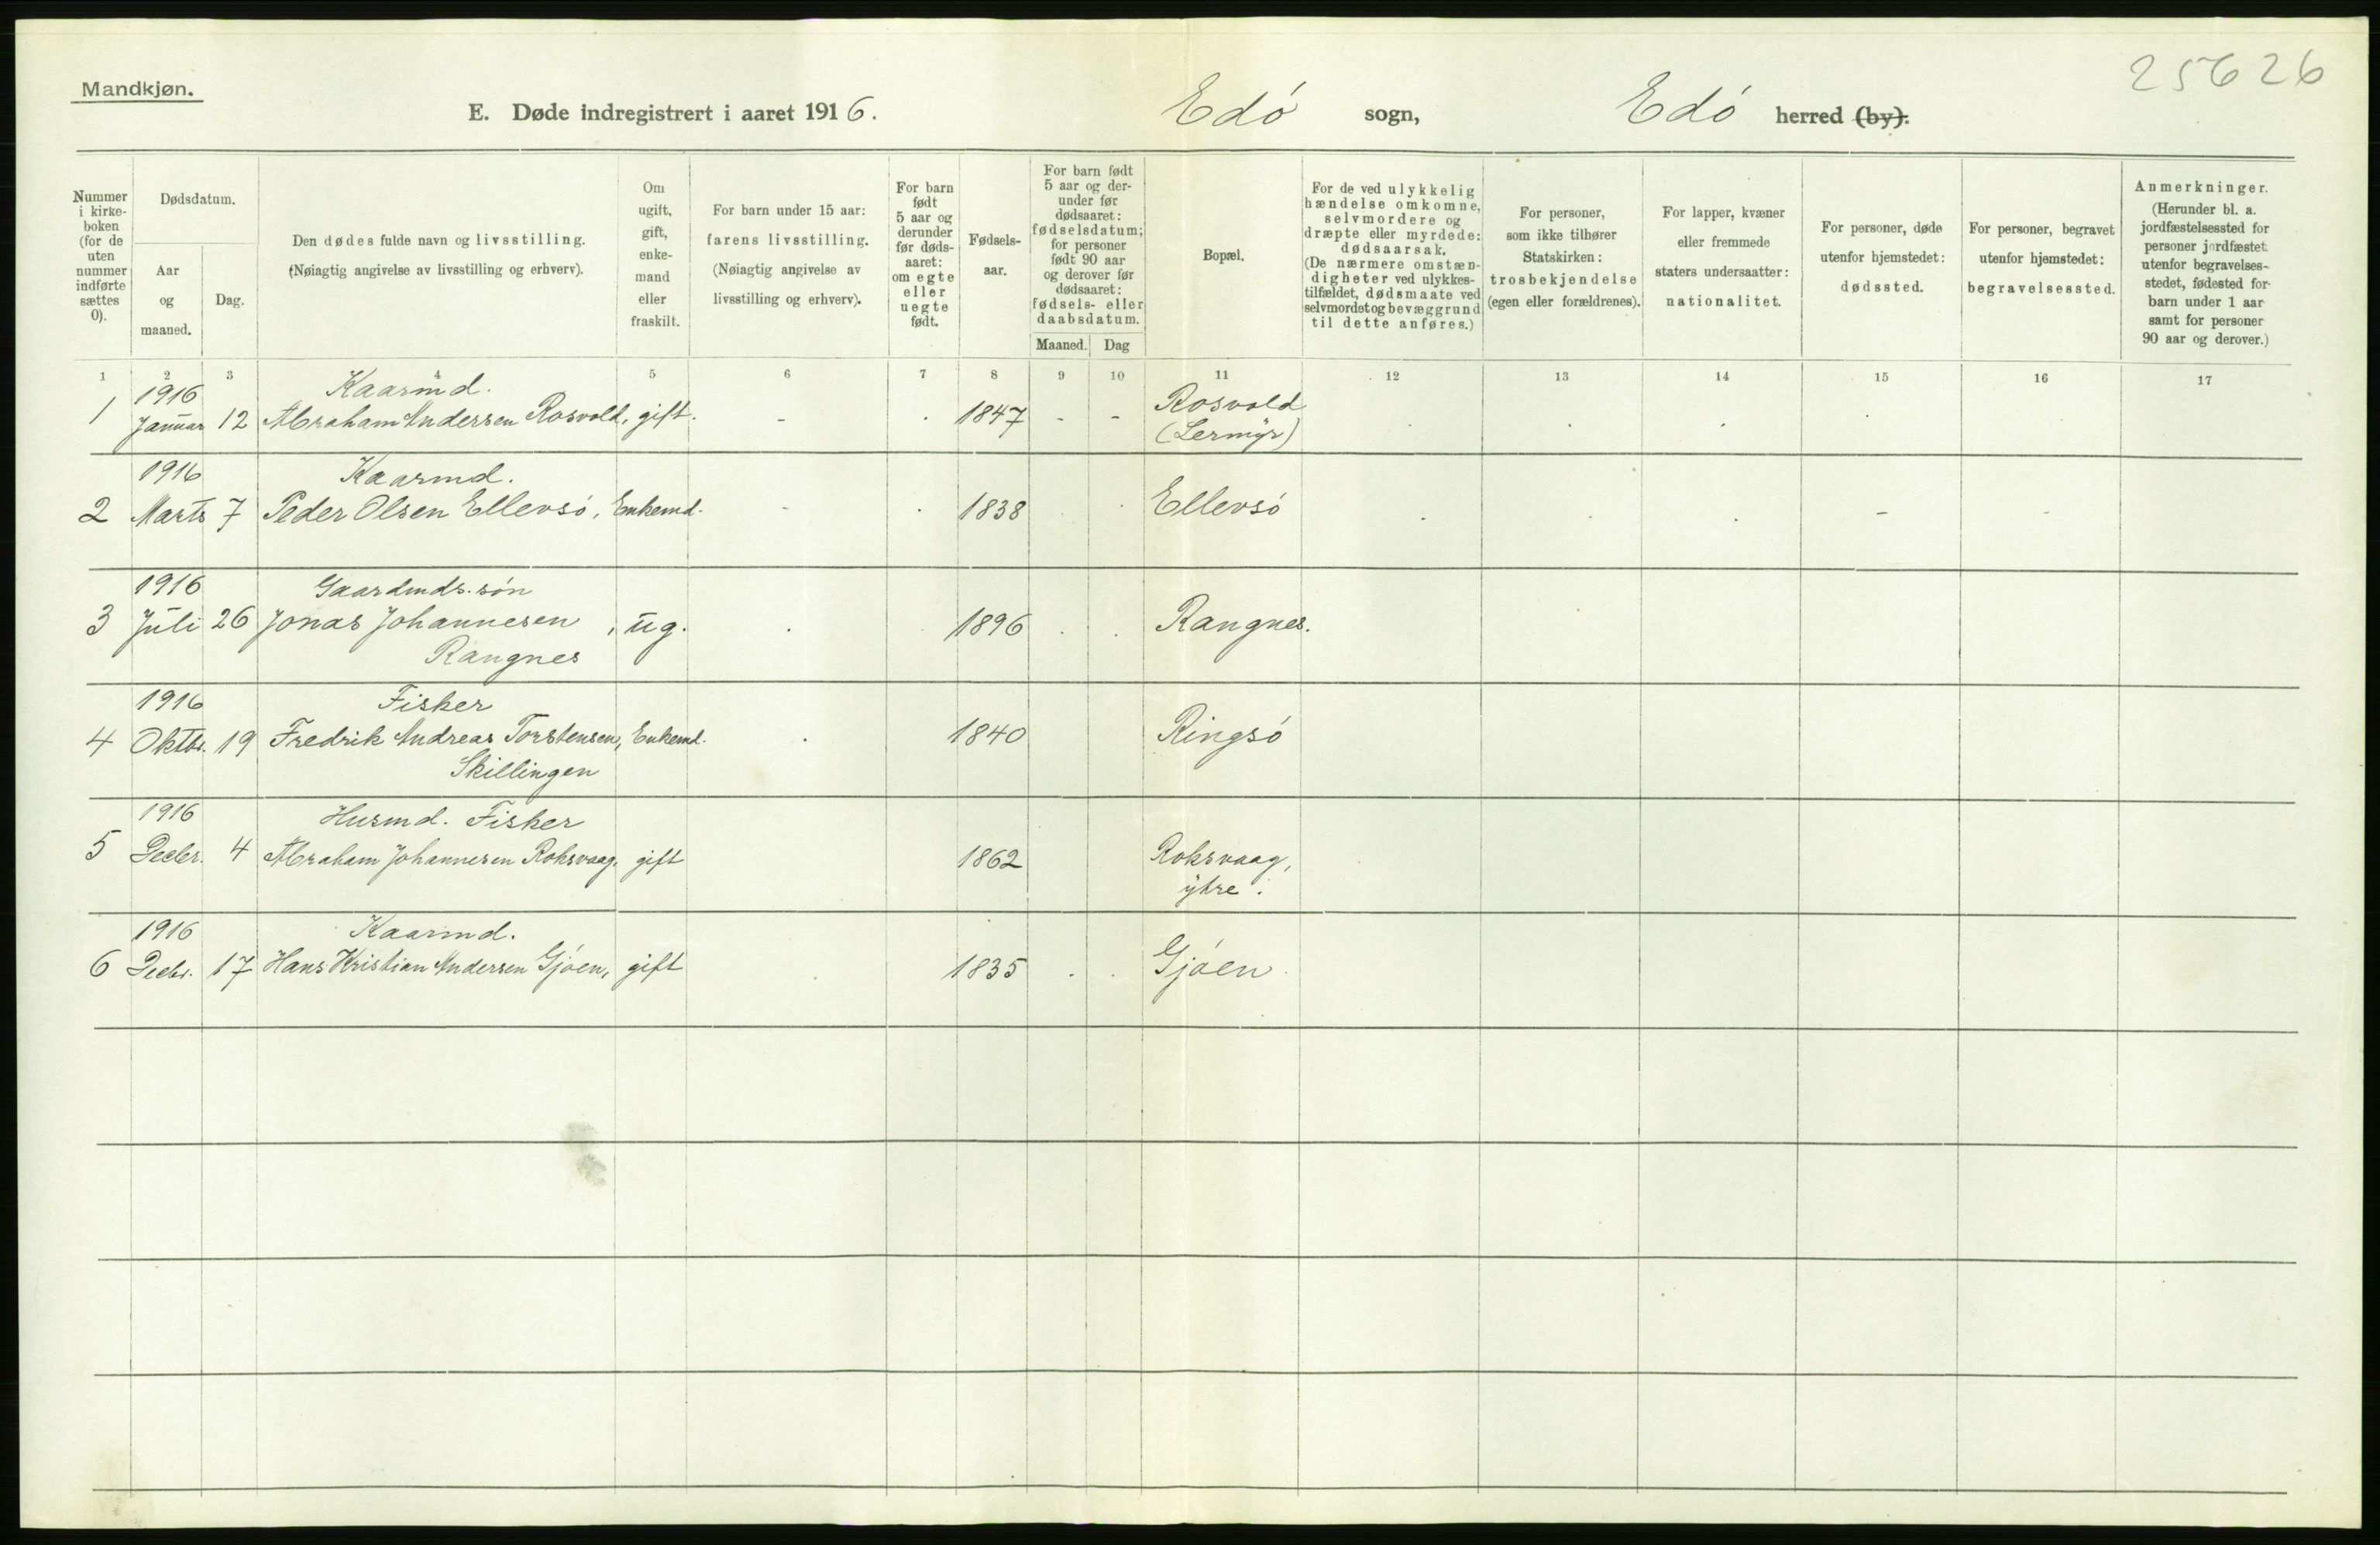 25626
Mandkjøn.
E. Døde indregistrert i aaret 1916. Edø sogn, Edø herred (by).
Nummer i kirkeboken (for de uten nummer indførte sættes 0).
Dødsdatum.
Aar og maaned.
Dag.
Den dødes fulde navn og livsstilling.
(Nøiagtig angivelse av livsstilling og erhverv).
Om ugift, gift, enkemand eller fraskilt.
For barn under 15 aar:
farens livsstilling.
(Nøiagtig angivelse av
livsstilling og erhverv).
For barn født 5 aar og derunder før dødsaaret: om egte eller uegte født.
Fødselsaar.
For barn født 5 aar og derunder før dødsaaret: fødselsdatum; for personer født 90 aar og derover før dødsaaret: fødsels- eller daabsdatum.
Maaned. Dag
Bopæl.
For de ved ulykkelig hændelse omkomne, selvmordere og dræpte eller myrdede: dødsaarsak. (De nærmere omstændigheter ved ulykkestilfældet, dødsmaate ved selvmordet og bevæggrund til dette anføres.)
For personer, som ikke tilhører Statskirken: trosbekjendelse (egen eller forældrenes).
For lapper, kvæner eller fremmede staters undersaatter: nationalitet.
For personer, døde utenfor hjemstedet: dødssted.
For personer, begravet utenfor hjemstedet: begravelsessted.
Anmerkninger. (Herunder bl. a. jordfæstelsessted for personer jordfæstet utenfor begravelsesstedet, fødested for barn under 1 aar samt for personer 90 aar og derover.)
1 2 3 4 5 6 7 8 9 10 11 12 13 14 15 16 17
1916 Kaarmd. Rosvold
1 Januar 12 Abraham Andersen Rosvold, gift. - . 1847 - - (Lermyr)
1916 Kaarmd.
2 Marts 7 Peder Olsen Ellevsó, Enkemd. - . 1838 Ellevsó
1916 Gaardmds. són
3 Juli 26 Jonas Johannesen, ug. . 1896 Rangnes.
Rangnes
1916 Fisker
4 Oktbr. 19 Fredrik Andreas Torstensen, Enkemd. . 1840 Ringsó
Skillingen
1916 Husmd. Fisker
5 Decbr. 4 Abraham Johannesen Roksvaag, gift 1862 Roksvaag,
ytre.
1916 Kaarmd.
6 Decbr. 17 Hans Kristian Andersen Gjóen, gift 1835 Gjóen